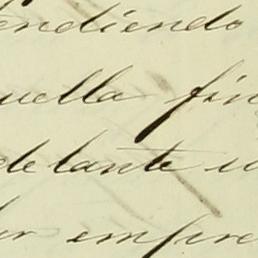 endiendo
uella fin
delante u
er empre